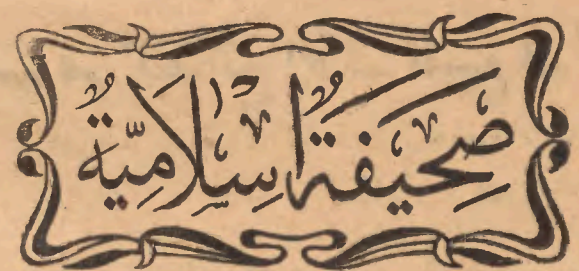 صَحِيفَةٌ اِسْلَامِيَّةٌ